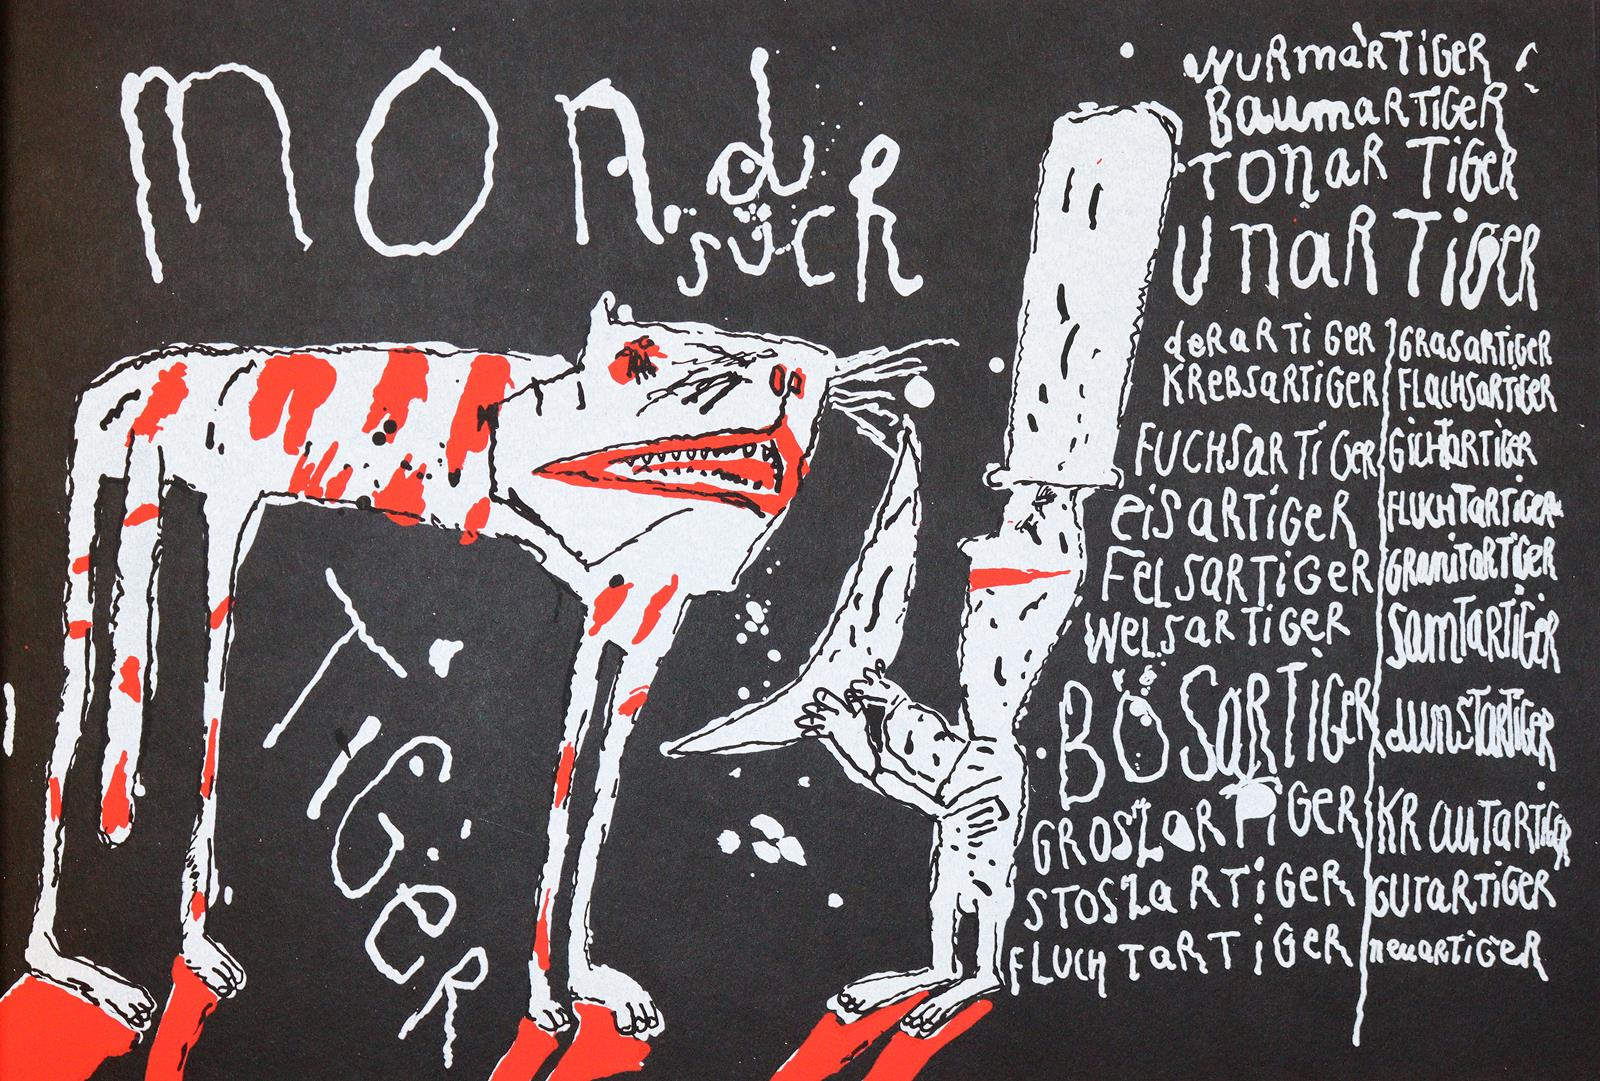 mond
süch
TiGeR
WURmaRTiGeR
BaumaRTiGeR
TONaR TiGeR
UnaRTiGeR
deRaRTiGeR
KReBsaRTiGeR
FUCHSaRTiGeR
eisaRTiGeR
FeLSaRTiGeR
WeLsaRTiGeR
BÖSaRTiGeR
GROSZaRTiGeR
STOSZaRTiGeR
FLUCHTaRTiGeR
GRasaRTiGeR
FLachsaRTiGeR
GiCHTaRTiGeR
FLUCHTaRTiGeR
GRaniTaRTiGeR
SamTaRTiGeR
dunsTaRTiGeR
KRauTaRTiGeR
GUTaRTiGeR
neuaRTiGeR